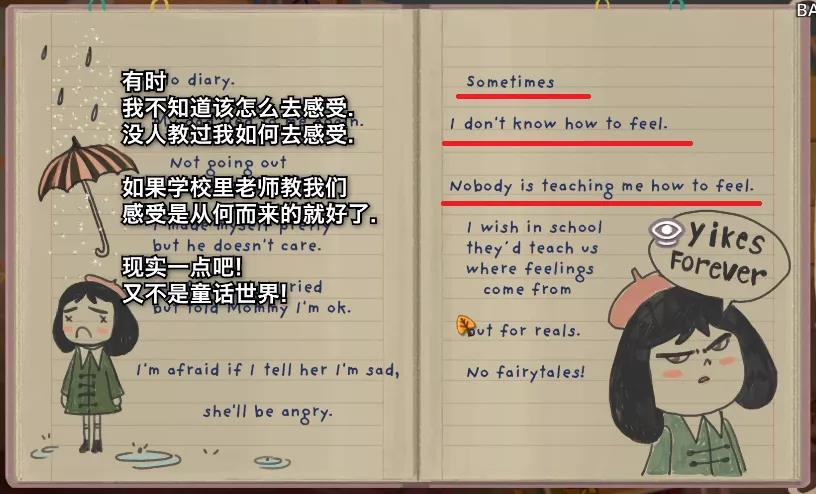 BA
有时
我不知道该怎么去感受.
没人教过我如何去感受.
如果学校里老师教我们
感受是从何而来的就好了.
现实一点吧!
又不是童话世界!
diary.
Not going out
I made myself pretty
but he doesn't care.
but told Mommy I'm ok.
I'm afraid if I tell her I'm sad,
she'll be angry.
Sometimes
I don't know how to feel.
Nobody is teaching me how to feel.
I wish in school
they'd teach us
where feelings
come from
but for reals.
No fairytales!
yikes
Forever